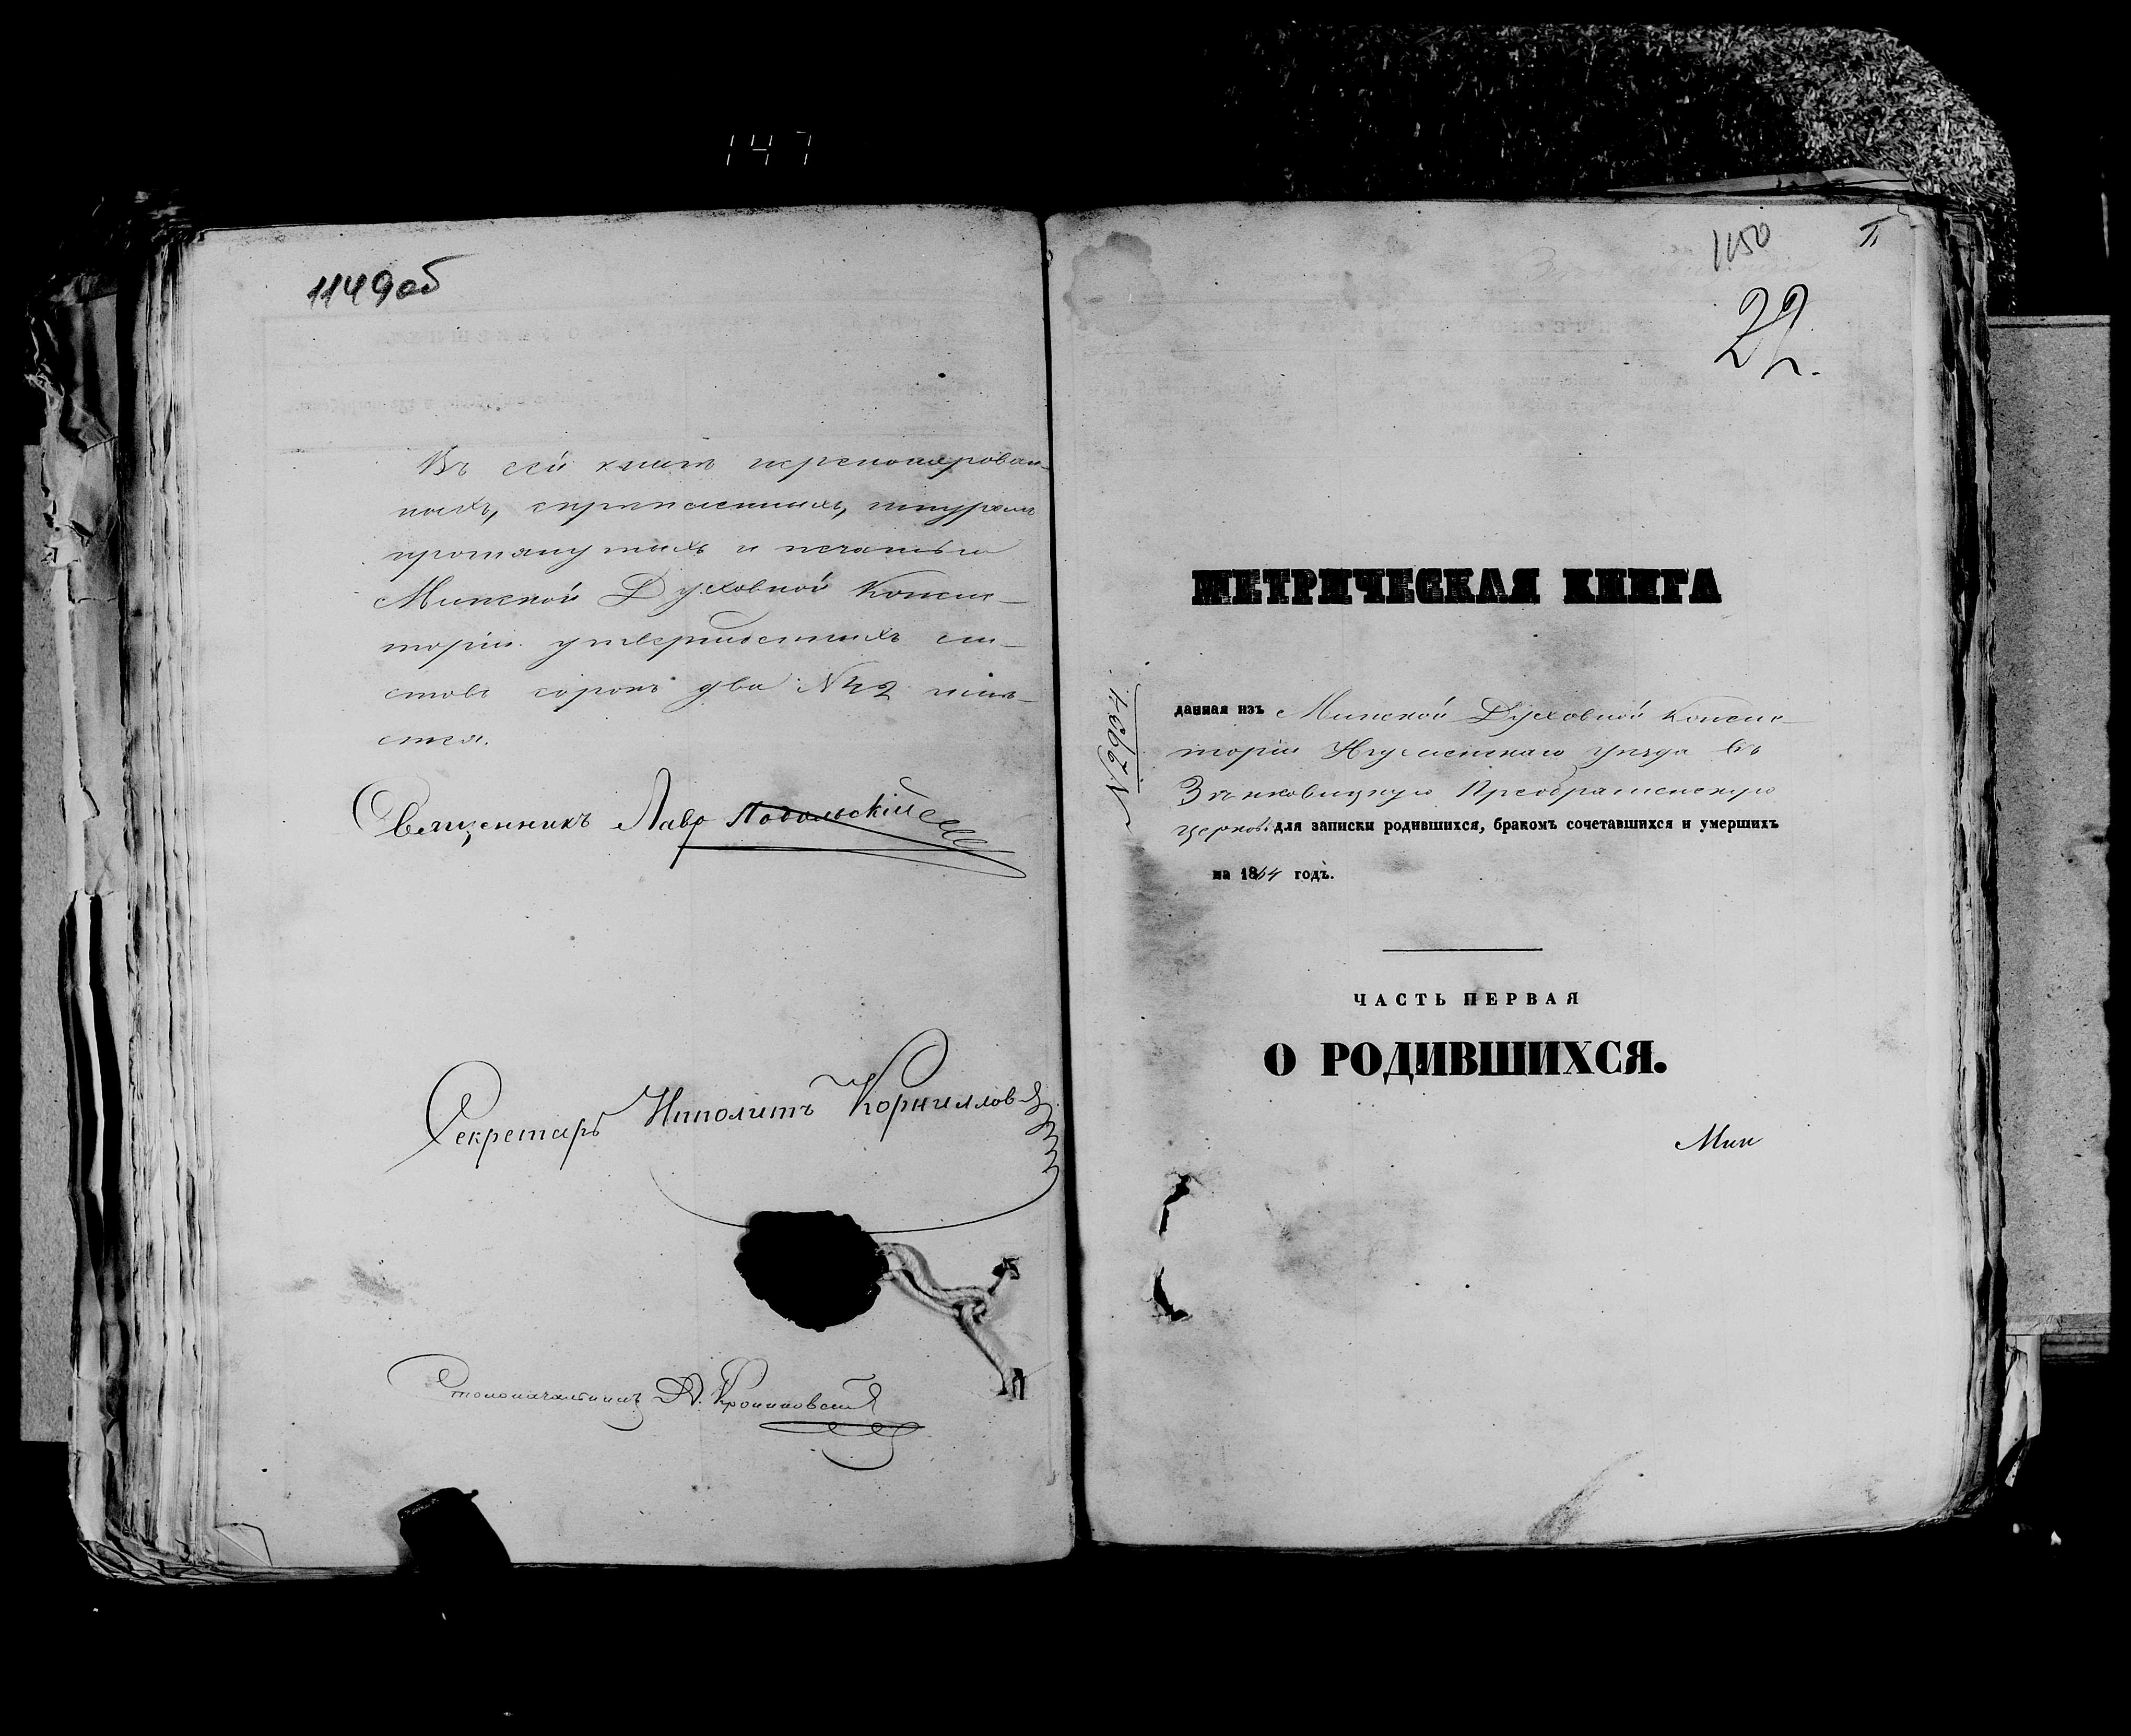 147
1149об
Въ сей книгѣ перенумерован-
ныхъ, скрѣпленныхъ, шнуромъ
протянутыхъ и печатью
Минской Духовной Консис-
торіи утвержденныхъ ли-
стовъ сорокъ два № 42 имѣ-
ется.
Священникъ Лавр Подольскій
Секретарь Иполитъ Корнилловъ
Столоначальникъ
1150
22.
МЕТРИЧЕСКАЯ КНИГА
данная изъ Минской Духовной Консис-
торіи Игуменскаго уѣзда въ
Зѣньковицкую Преображенскую
церковь для записки родившихся, бракомъ сочетавшихся и умершихъ
на 1864 годъ.
ЧАСТЬ ПЕРВАЯ
О РОДИВШИХСЯ.
Мин